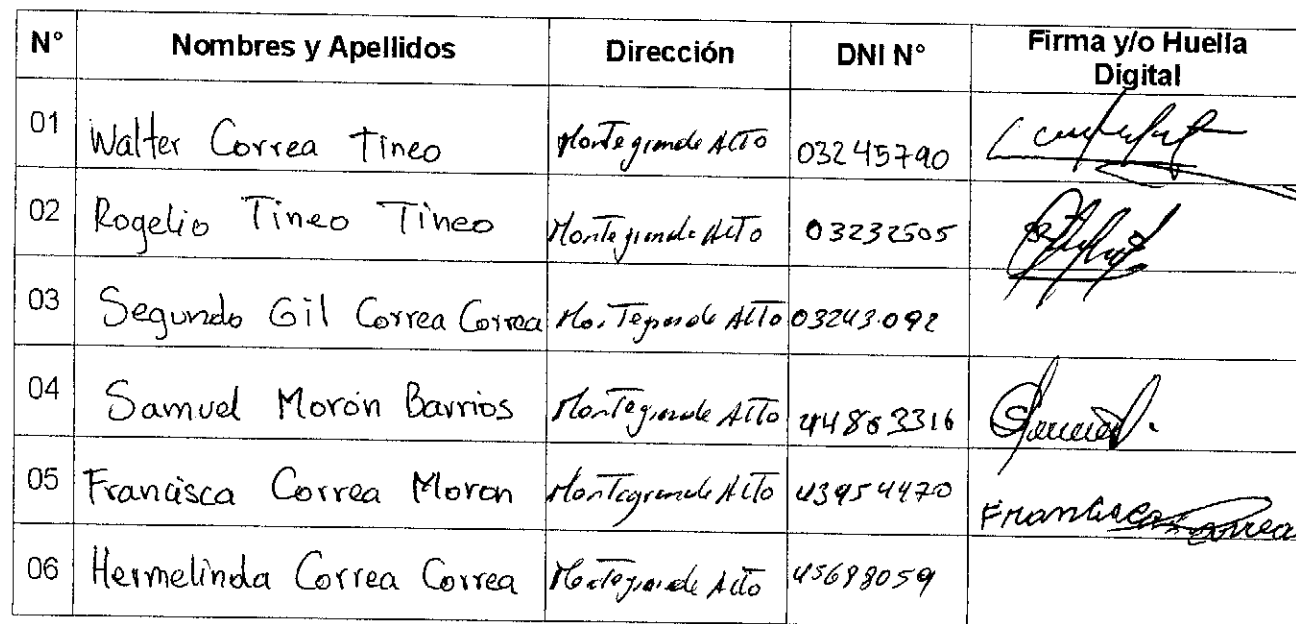 N° Nombres y Apellidos Dirección DNI N° Firma y/o Huella Digital
01 Walter Correa Tineo Montegrande Alto 03245790
02 Rogelio Tineo Tineo Montegrande Alto 03232505
03 Segundo Gil Correa Correa Montegrande Alto 03243092
04 Samuel Morón Barrios Montegrande Alto 44863316
05 Francisca Correa Moron Montegrande Alto 43954470 Francisca Correa
06 Hermelinda Correa Correa Montegrande Alto 45698059